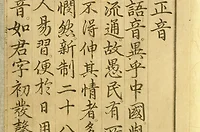 正音
語音異乎中國與
流通故愚民有所
不得伸其情者多
憫然新制二十八
人易習便於日用
音如君字初發聲